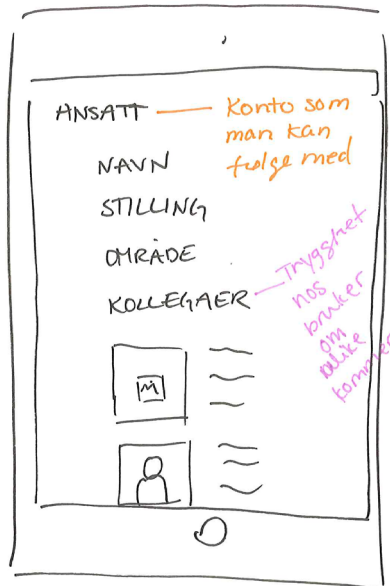 ANSATT
Konto som
man kan
følge med
NAVN
STILLING
OMRÅDE
KOLLEGAER
Trygghet
hos
bruker
om
ulike
kommer